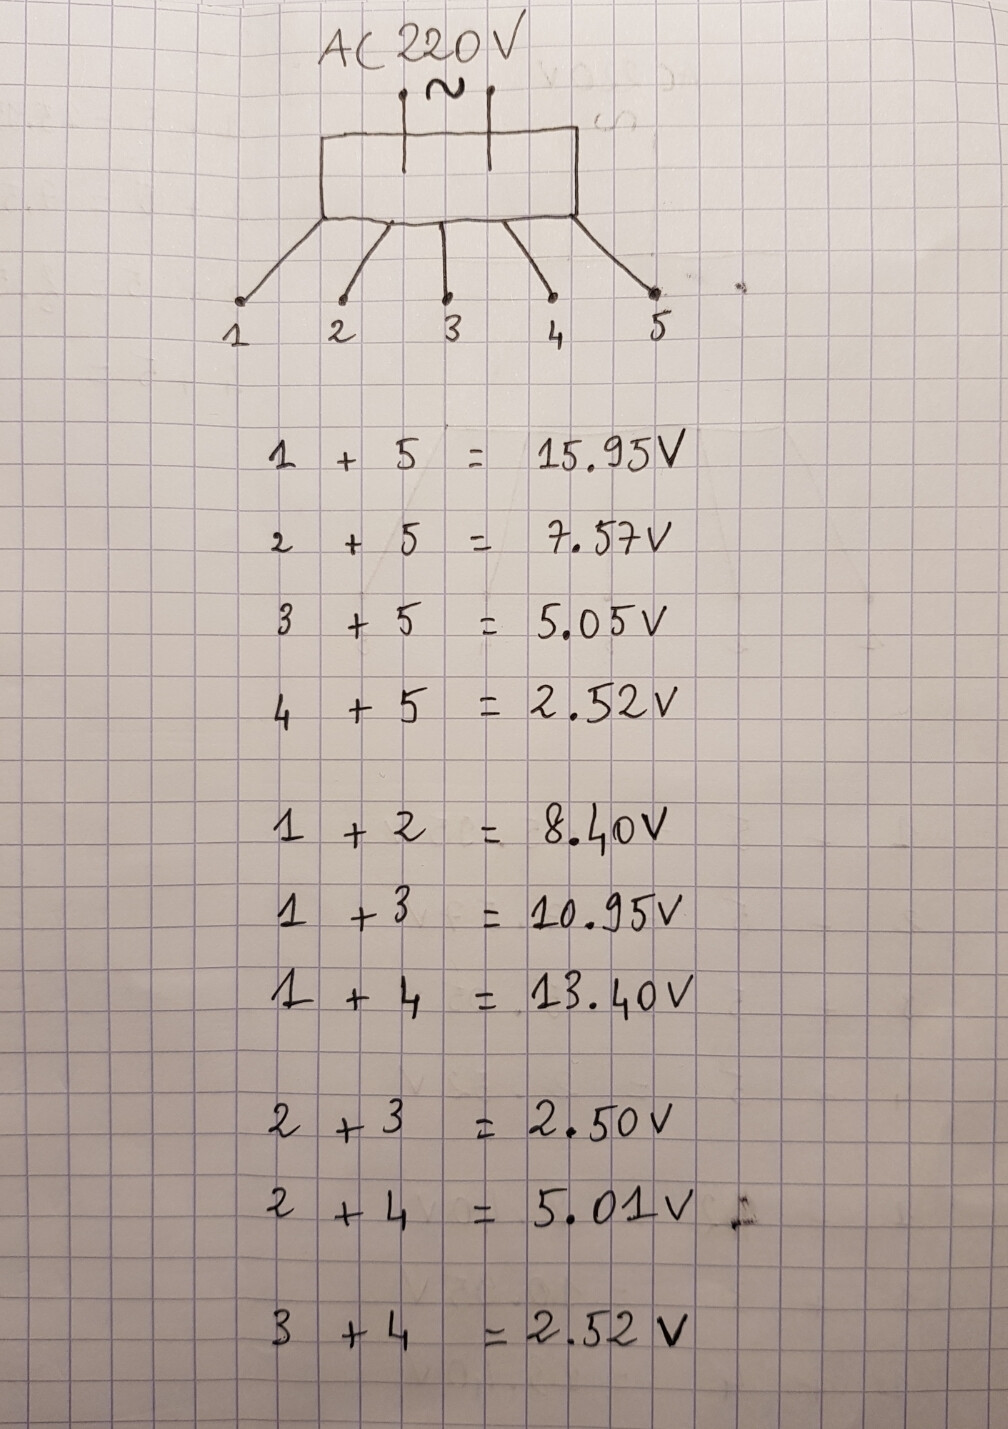 AC 220V
~
1 2 3 4 5
1 + 5 = 15.95V
2 + 5 = 7.57V
3 + 5 = 5.05V
4 + 5 = 2.52V
1 + 2 = 8.40V
1 + 3 = 10.95V
1 + 4 = 13.40V
2 + 3 = 2.50V
2 + 4 = 5.01V
3 + 4 = 2.52V